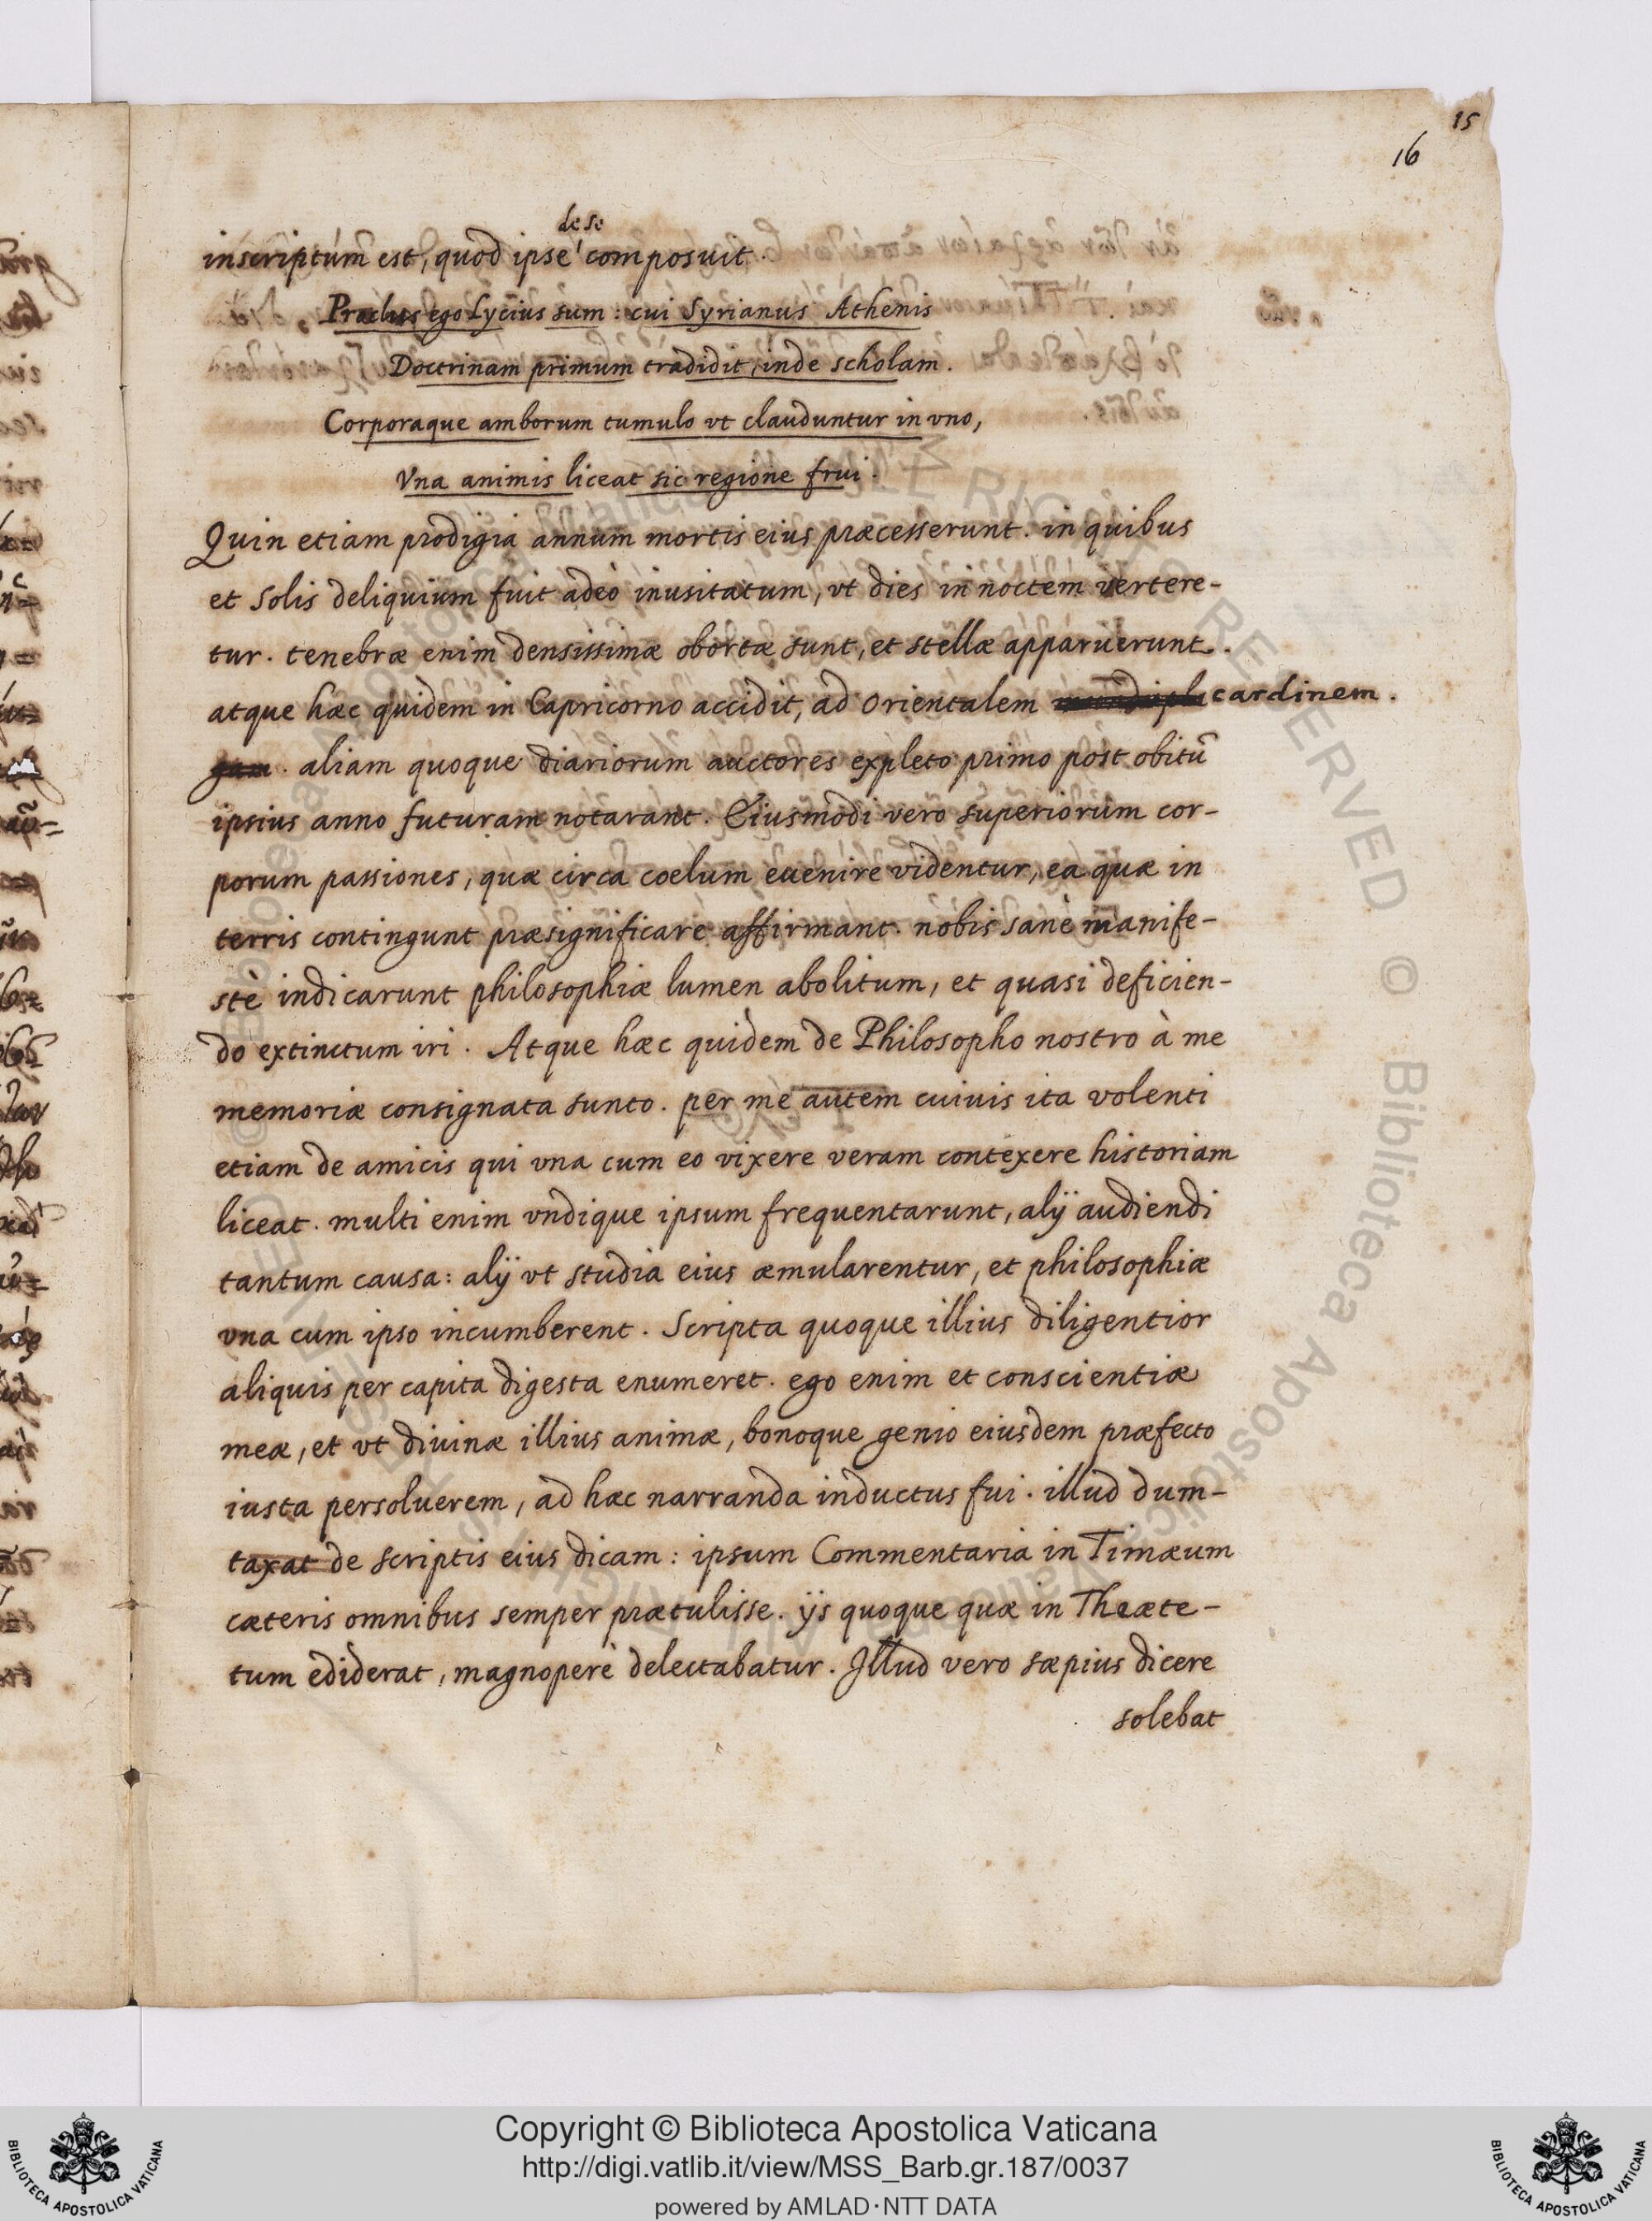 15
16
de se
inscriptum est, quod ipse composuit.
Proclus ego Lycius sum: cui Syrianus Athenis
Doctrinam primum tradidit, inde scholam.
Corporaque amborum tumulo vt clauduntur in vno,
Vna animis liceat sic regione frui.
Quin etiam prodigia annum mortis eius præcesserunt. in quibus
et Solis deliquium fuit adeò inusitatum, vt dies in noctem vertere-
tur. tenebræ enim densissimæ obortæ sunt, et stellæ apparuerunt.
atque hæc quidem in Capricorno accidit, ad Orientalem cardinem.
gam. aliam quoque diariorum auctores expleto primo post obitũ
ipsius anno futuram notarant. Eiusmodi vero superiorum cor-
porum passiones, quæ circa coelum euenire videntur, ea quæ in
terris contingunt præsignificare affirmant. nobis sanè manife-
stè indicarunt philosophiæ lumen abolitum, et quasi deficien-
do extinctum iri. Atque hæc quidem de Philosopho nostro à me
memoriæ consignata sunto. per me autem cuiuis ita volenti
etiam de amicis qui vna cum eo vixere veram contexere historiam
liceat. multi enim vndique ipsum frequentarunt, alÿ audiendi
tantum causa: alÿ vt studia eius æmularentur, et philosophiæ
vna cum ipso incumberent. Scripta quoque illius diligentior
aliquis per capita digesta enumeret. ego enim et conscientiæ
meæ, et vt diuinæ illius animæ, bonoque genio eiusdem præfecto
iusta persoluerem, ad hæc narranda inductus fui. illud dum-
taxat de scriptis eius dicam: ipsum Commentaria in Timæum
cæteris omnibus semper prætulisse. ÿs quoque quæ in Theæte-
tum ediderat, magnoperè delectabatur. Illud vero sæpius dicere
solebat
Copyright © Biblioteca Apostolica Vaticana
http://digi.vatlib.it/view/MSS_Barb.gr.187/0037
powered by AMLAD·NTT DATA
BIBLIOTECA APOSTOLICA VATICANA
BIBLIOTECA APOSTOLICA VATICANA